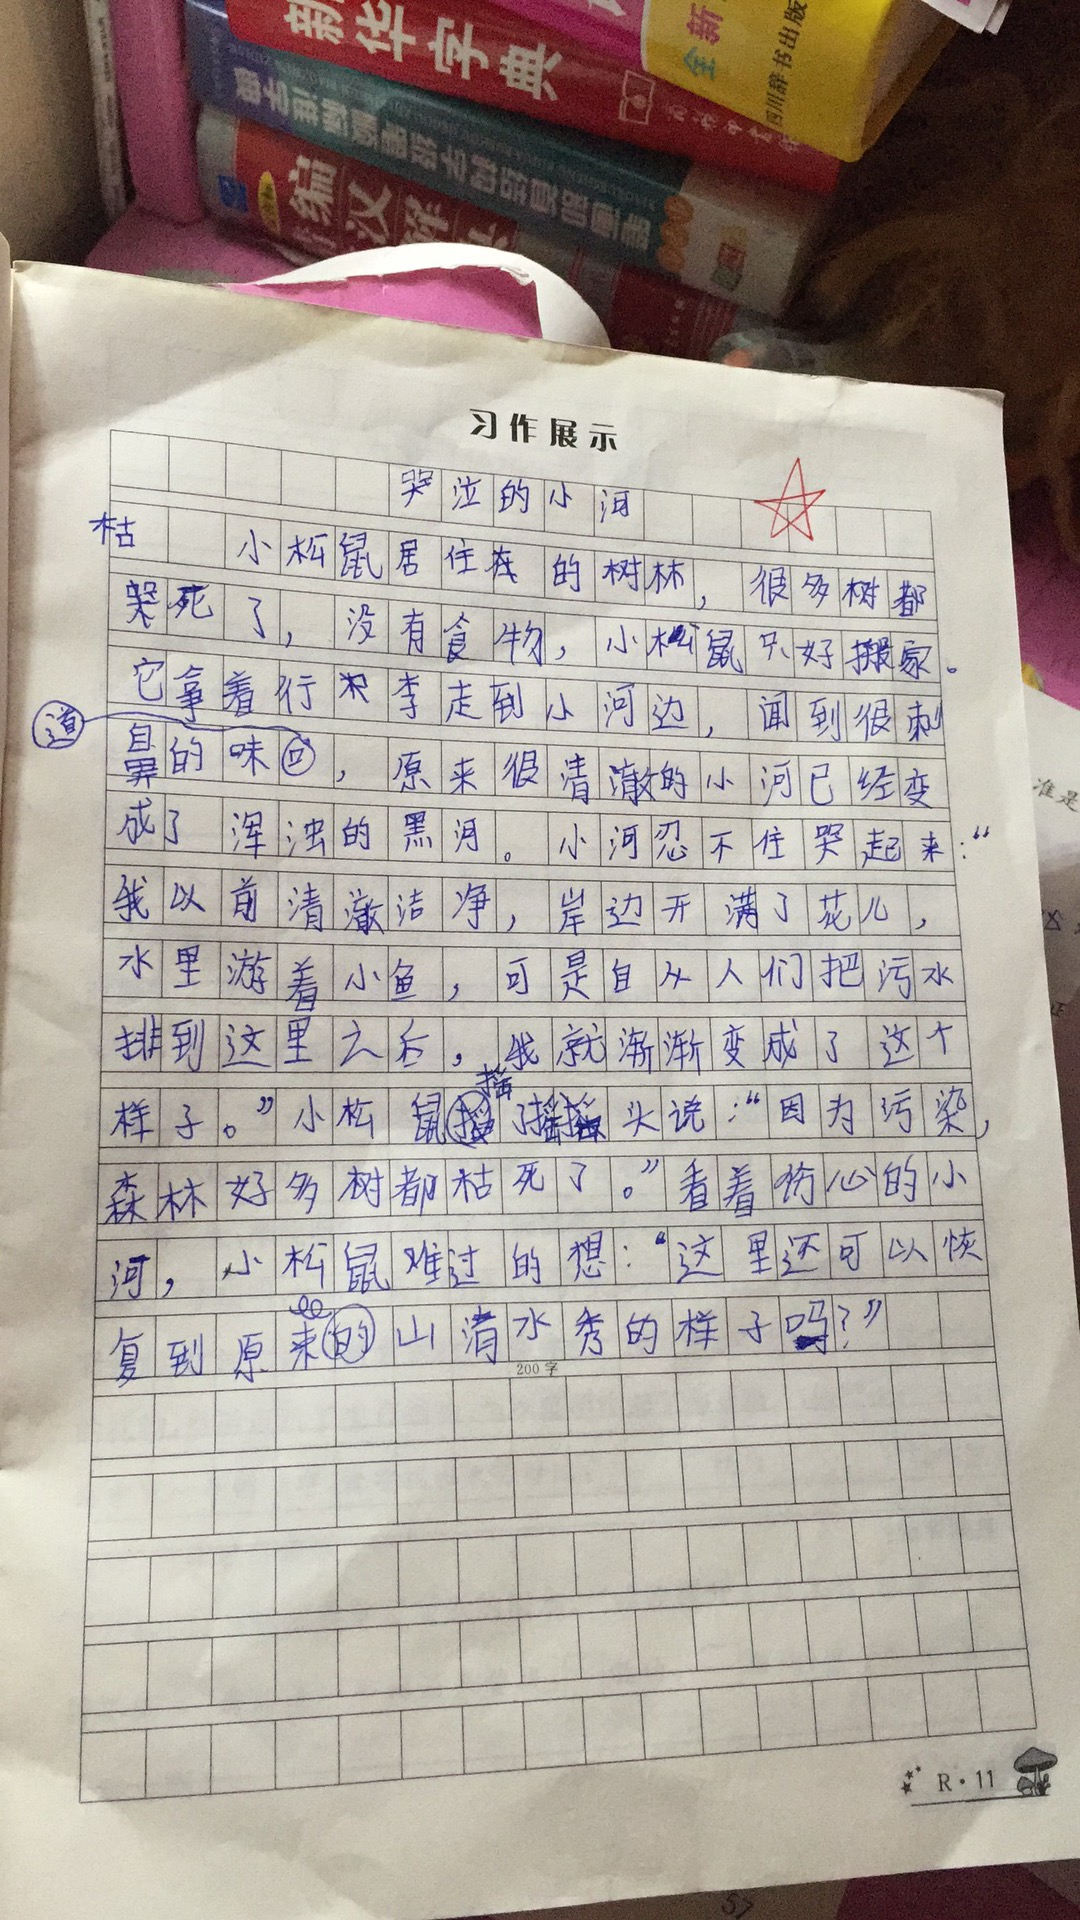 新华字典
全新
四川辞书出版
习作展示
哭泣的小河
枯
小松鼠居住在的树林，很多树都
哭死了，没有食物，小松鼠只好搬家。
它拿着行李走到小河边，闻到很刺
道
鼻的味回，原来很清澈的小河已经变
成了浑浊的黑河。小河忍不住哭起来：“
我以前清澈洁净，岸边开满了花儿，
水里游着小鱼，可是自从人们把污水
排到这里之后，我就渐渐变成了这个
摇
样子。”小松鼠摇了摇头说：“因为污染，
森林好多树都枯死了。”看着伤心的小
河，小松鼠难过的想：“这里还可以恢
复到原来的山清水秀的样子吗？”
200字
R·11
准是
57